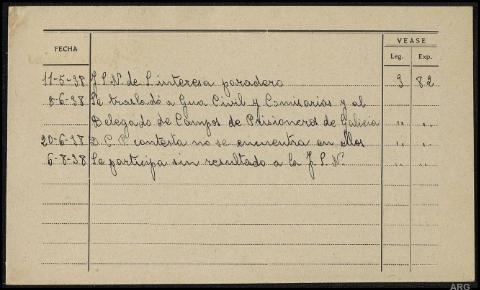 VEASE
FECHA Leg. Exp.
11-5-38 J.S.N. de S. interesa paradero 3 82
8-6-38 Se trasladó a Gua Civil y Comisarios y al
Delegado de Campos de Prisioneros de Galicia " "
20-6-38 D.C.P. contesta no se encuentra en ellos " "
6-8-38 Se participa sin resultado a la J.S.N. " "
ARG